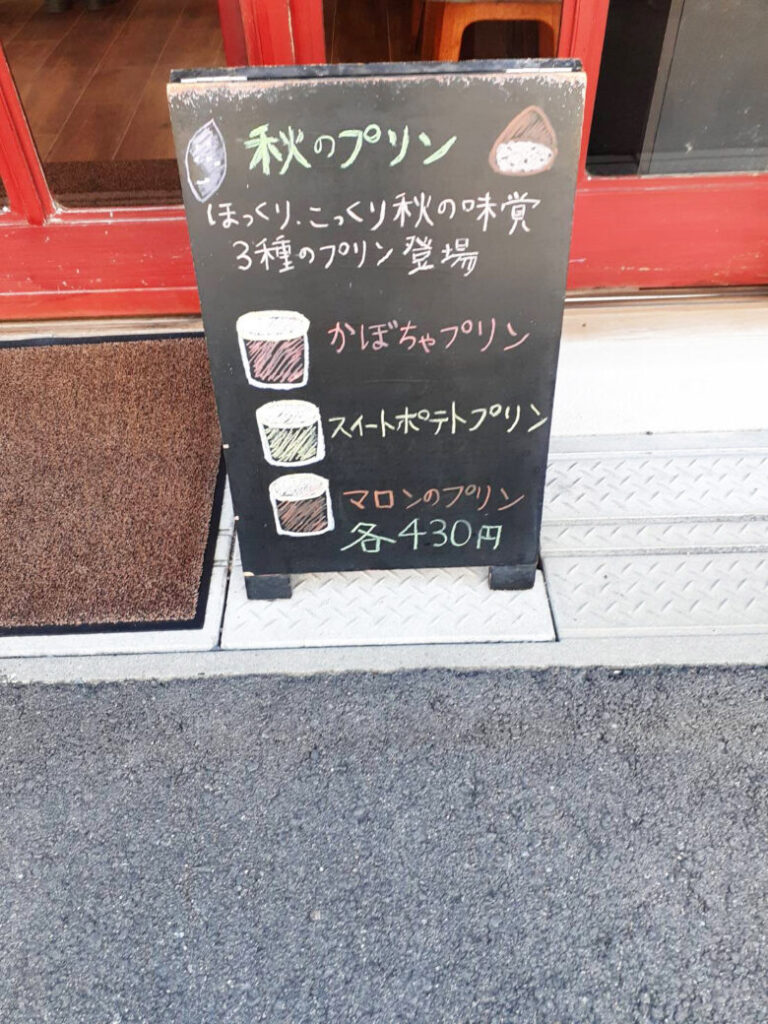 秋のプリン
ほっくり、こっくり秋の味覚
3種のプリン登場
かぼちゃプリン
スイートポテトプリン
マロンのプリン
各430円